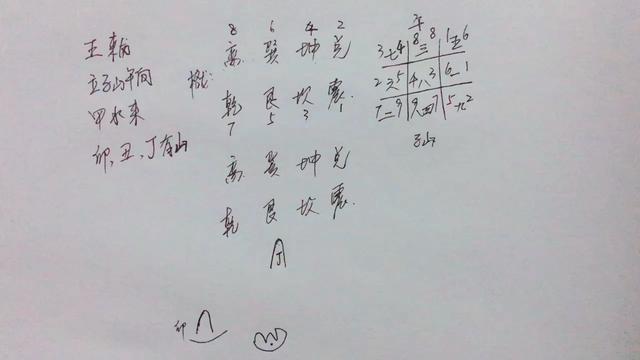 王
立子山午向
甲水来
卯,丑,丁有山
8 6 4 2
离 巽 坤 兑
乾 艮 坎 震
7 5 3 1
离 巽 坤 兑
乾 艮 坎 震
午
3七4 8三8 1五6
2六5 4八3 6一1
7二9 9四7 5九2
子山
丁
卯